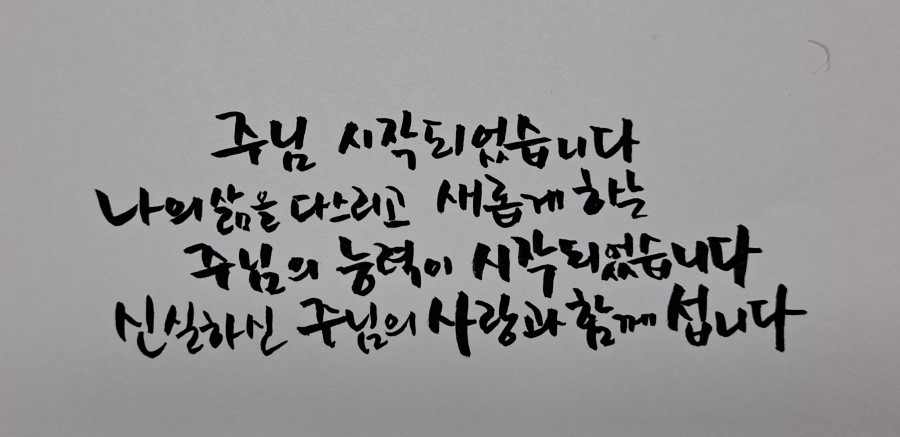 주님 시작되었습니다
나의 삶을 다스리고 새롭게 하는
주님의 능력이 시작되었습니다
신실하신 주님의 사랑과 함께 섭니다